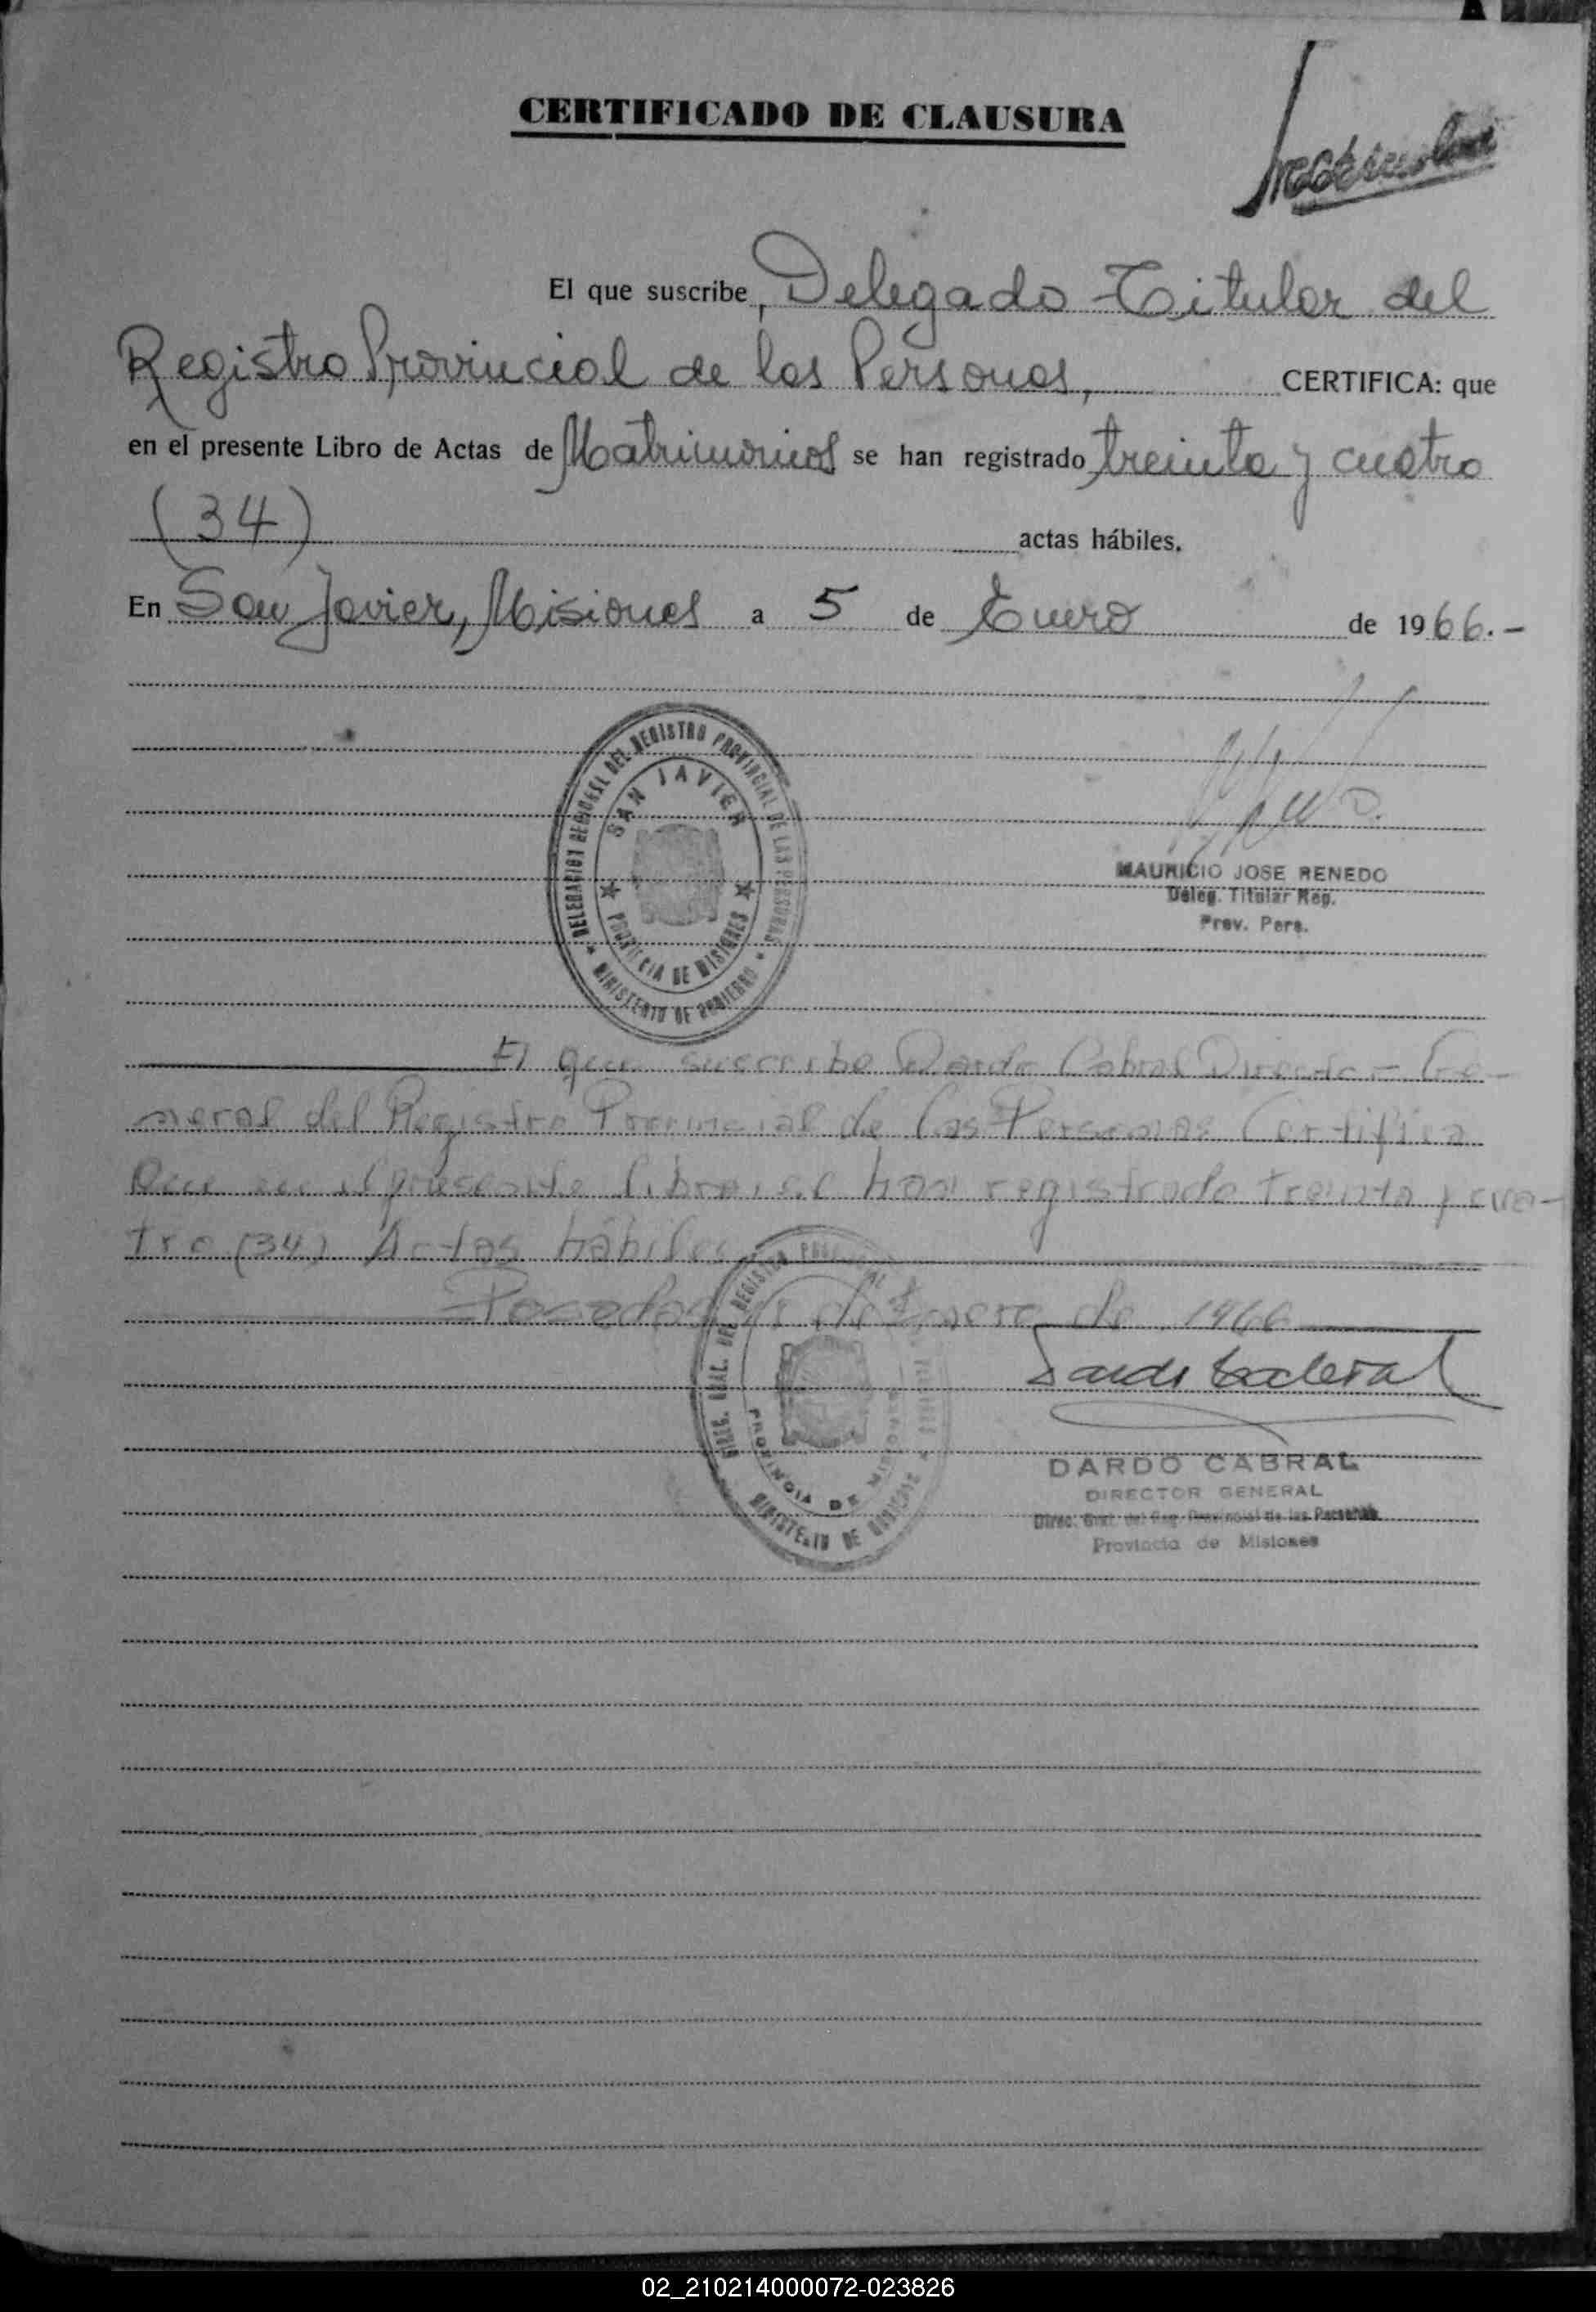 CERTIFICADO DE CLAUSURA
El que suscribe, Delegado Titular del
Registro Provincial de las Personas, CERTIFICA: que
en el presente Libro de Actas de Matrimonios se han registrado treinta y cuatro
(34) actas hábiles.
En San Javier, Misiones a 5 de Enero de 1966.-
DELEGACION DEL REGISTRO PROVINCIAL DE LAS PERSONAS
SAN JAVIER
PROVINCIA DE MISIONES
MINISTERIO DE GOBIERNO
MAURICIO JOSE RENEDO
Deleg. Titular Reg.
Prov. Pers.
El que suscribe Dardo Cabral Director Ge-
neral del Registro Provincial de las Personas Certifica
Que en el presente libro se han registrado treinta y cua-
tro (34) Actas hábiles
Posadas de Enero de 1966
Dardo Cabral
DIREC. GRAL. DEL REGISTRO
PROVINCIA DE MISIONES
MINISTERIO DE GOBIERNO
DARDO CABRAL
DIRECTOR GENERAL
Direc. Gral. del Reg. Provincial de las Personas
Provincia de Misiones
02_210214000072-023826